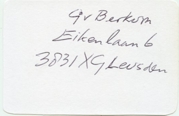 G v Berkom
Eikenlaan 6
3831 XG Leusden